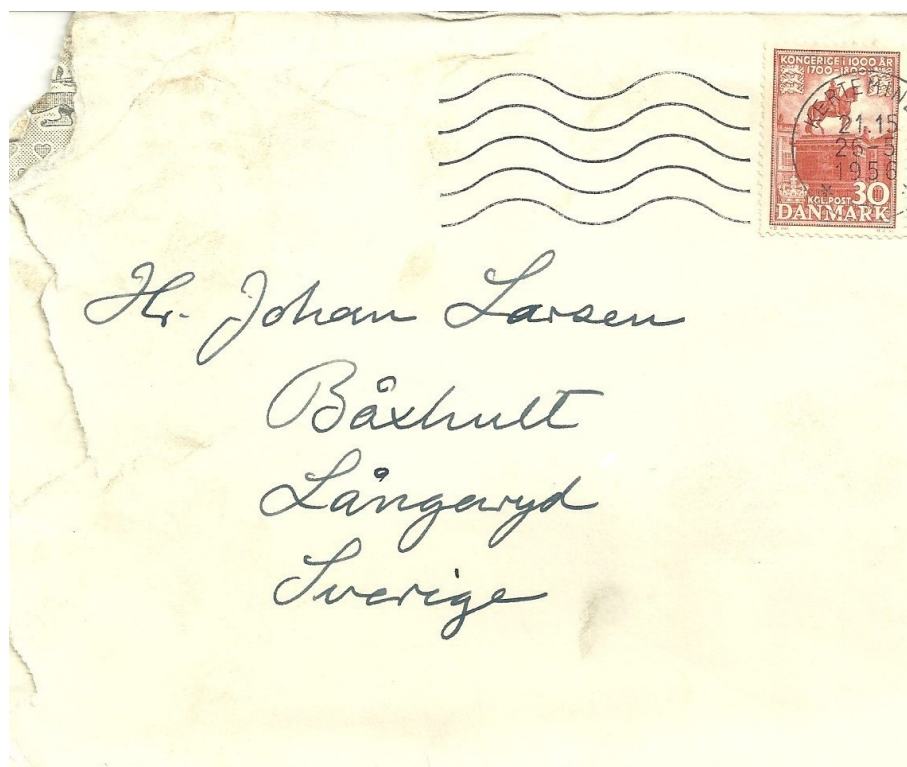 KONGERIGE I 1000 ÅR
1700-1800
KERTEMINDE
21.15
26-5
1956
KGL. POST 30
DANMARK
Hr. Johan Larsen
Båxhult
Långaryd
Sverige